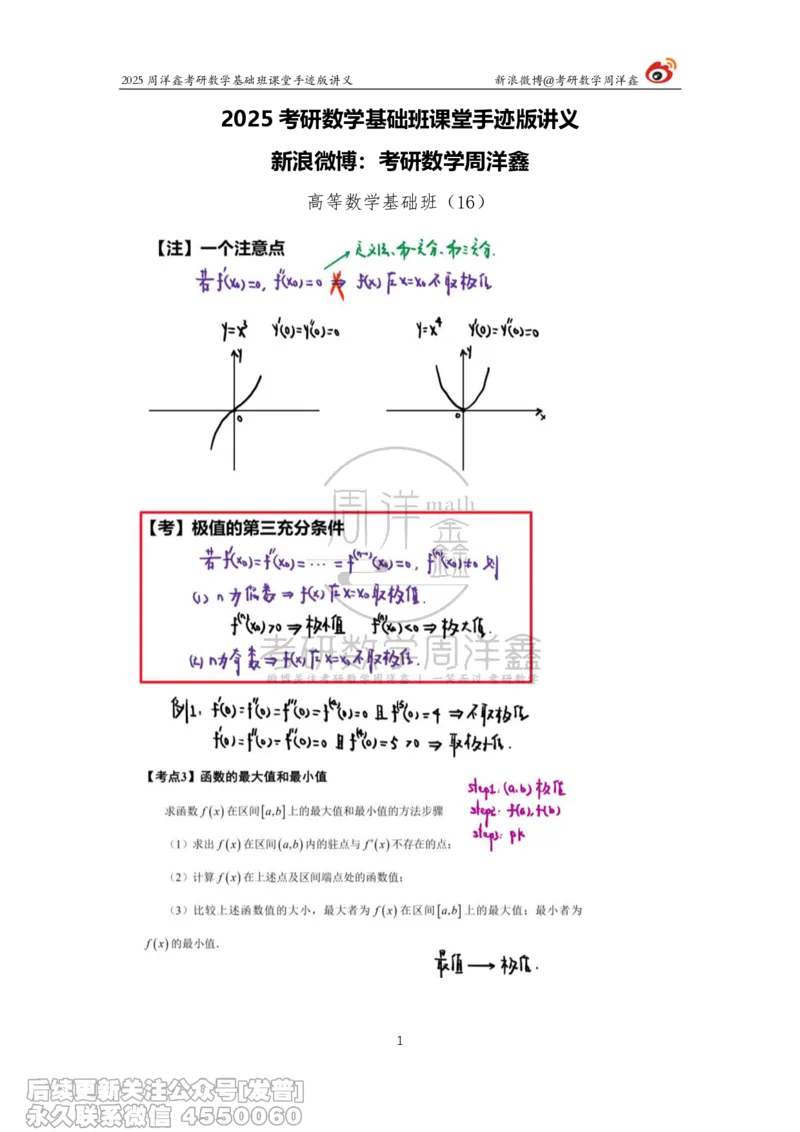 2025 周洋鑫考研数学基础班课堂手迹版讲义 新浪微博@考研数学周洋鑫
2025 考研数学基础班课堂手迹版讲义
新浪微博：考研数学周洋鑫
高等数学基础班（16）
【注】一个注意点
→定义法、和一充分、和三充分.
若f'(x₀)=0, f''(x₀)=0 ⇒ f(x)在x=x₀不取极值
y=x³ y'(0)=y''(0)=0 y=x⁴ y'(0)=y''(0)=0
y y
0 0 x
周洋鑫 math
【考】极值的第三充分条件
若f'(x₀)=f''(x₀)=⋯=f⁽ⁿ⁻¹⁾(x₀)=0, f⁽ⁿ⁾(x₀)≠0 则
(1) n为偶数⇒f(x)在x=x₀取极值.
f⁽ⁿ⁾(x₀)>0⇒极小值 f⁽ⁿ⁾(x₀)<0⇒极大值.
(2) n为奇数⇒f(x)在x=x₀不取极值.
考研数学周洋鑫
微博关注考研数学周洋鑫 | 一笑而过 考研数学
例1. f'(0)=f''(0)=f'''(0)=f⁽⁴⁾(0)=0 且f⁽⁵⁾(0)=4 ⇒不取极值
f'(0)=f''(0)=f'''(0)=0 且f⁽⁴⁾(0)=5>0 ⇒取极小值.
【考点3】函数的最大值和最小值
step1: (a,b)极值
求函数 f(x) 在区间[a,b]上的最大值和最小值的方法步骤 step2: f(a), f(b)
step3: pk
（1）求出 f(x) 在区间(a,b)内的驻点与 f'(x) 不存在的点;
（2）计算 f(x) 在上述点及区间端点处的函数值;
（3）比较上述函数值的大小，最大者为 f(x) 在区间[a,b]上的最大值；最小者为
f(x) 的最小值.
最值→极值.
1
后续更新关注公众号[发普]
永久联系微信 4550060